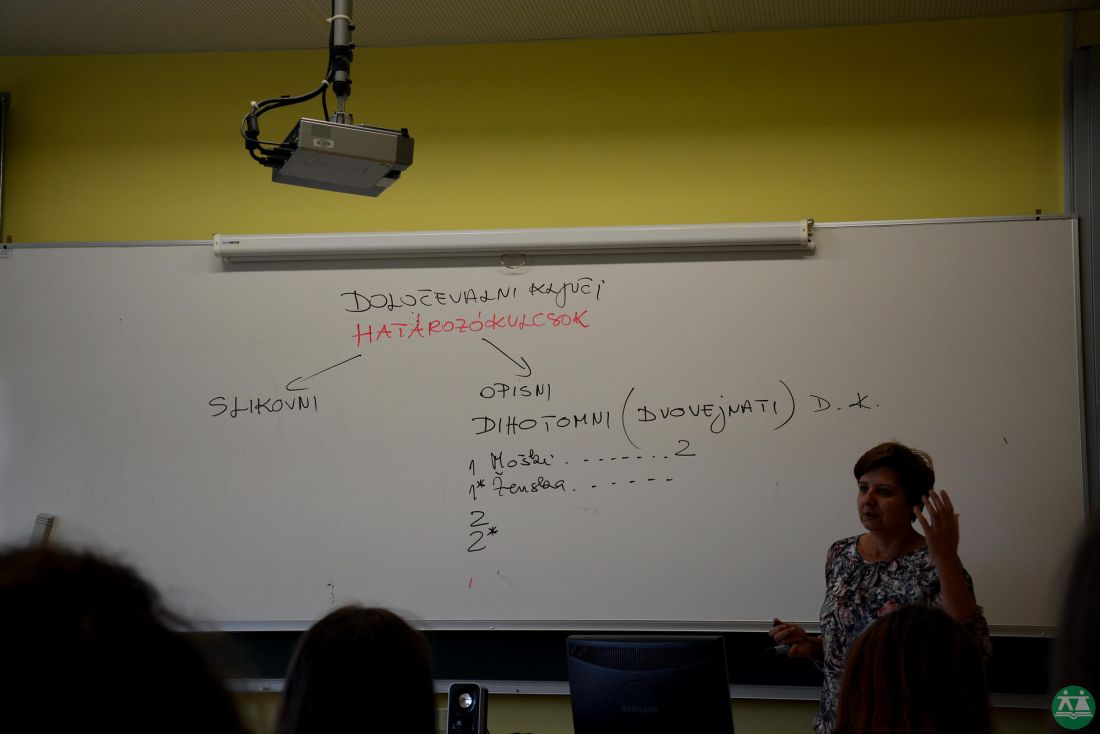 DOLOČEVALNI KLJUČI
HATÁROZÓKULCSOK
SLIKOVNI
OPISNI
DIHOTOMNI (DVOVEJNATI) D. K.
1 Moški . - - - - - - . . 2
1* Ženska . - - - - - -
2
2*
SAMSUNG